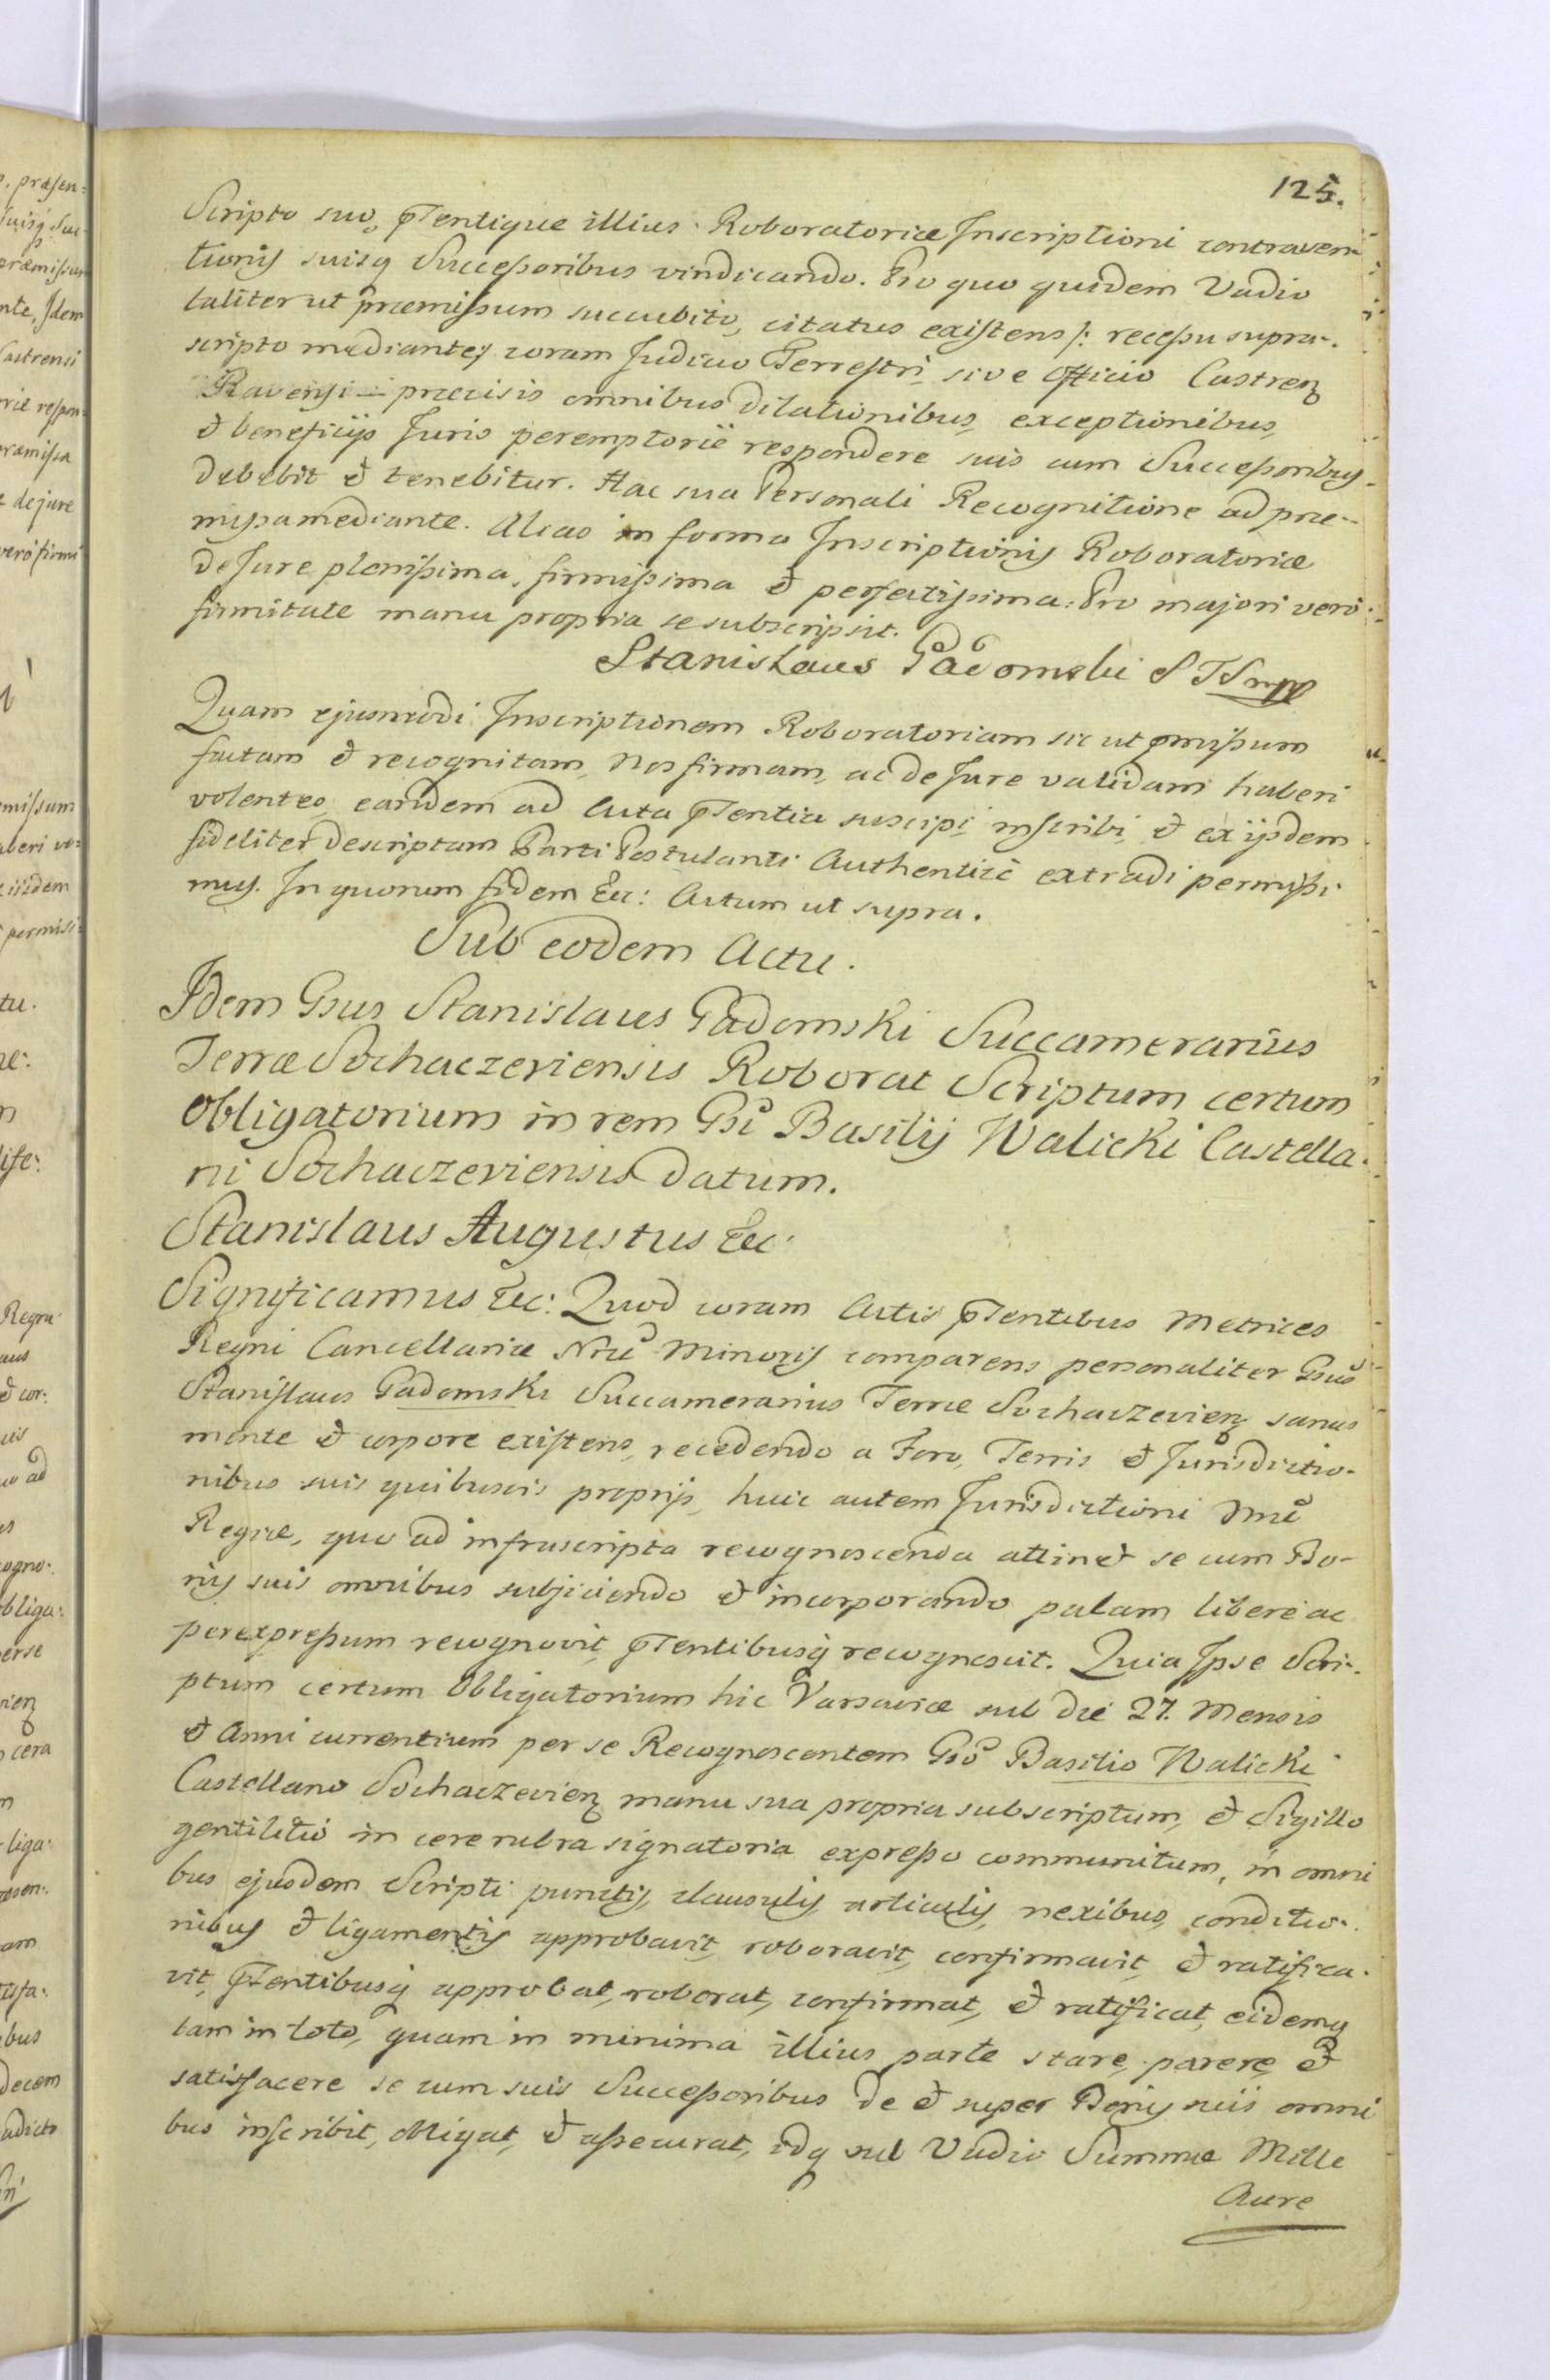 125.
Scripto suo, pntentique illius Roboratoriæ Inscriptioni contraven-
tionis suisq Successoribus vindicando. Pro quo quidem Vadio
taliter ut præmissum succubito, citatus existens /: recessu supra-
scripto mediante :/ coram Judicio Terrestri, sive Officio Castren
Ravensi præcisis omnibus dilationibus, exceptionibus,
et beneficijs Juris peremptorie respondere suis cum Successoribus
debebit et tenebitur. Hac sua Personali Recognitione ad præ-
missa mediante. Alias in forma Inscriptionis Roboratoriæ
de Jure plenissima, firmissima et perfectissima. Pro majori vero
firmitate manu propria se subscripsit.
Stanislaus Gadomski S T S mpp
Quam ejusmodi Inscriptionem Roboratoriam sic ut pmissum
factam et recognitam, Nos firmam, ac de Jure validam haberi
volentes, eandem ad Acta pntentia suscipi, inscribi, et ex ijsdem
fideliter descriptam Parti Postulanti Authentice extradi permissi-
mus. In quorum fidem Ec: Actum ut supra.
Sub eodem Actu.
Idem Gsus Stanislaus Gadomski Succamerarius
Terræ Sochaczeviensis Roborat Scriptum certum
Obligatorium in rem Gsi Basilij Walicki Castella-
ni Sochaczeviensis datum.
Stanislaus Augustus Ec:
Significamus Ec: Quod coram Actis pntentibus Metrices
Regni Cancellariæ Nræ Minoris comparens personaliter Gsus
Stanislaus Gadomski Succamerarius Terræ Sochaczevien sanus
mente et corpore existens, recedendo a Foro, Terris et Jurisdictio-
nibus suis quibusvis proprijs, huic autem Jurisdictioni Nræ
Regiæ, quo ad infrascripta recognoscenda attinet se cum Bo-
nis suis omnibus subjiciendo et incorporando palam libere ac
per expressum recognovit, pntentibusq recognoscit. Quia Ipse Scri-
ptum certum Obligatorium hic Varsaviæ sub die 27. Mensis
et Anni currentium per se Recognoscentem Gso Basilio Walicki
Castellano Sochaczevien manu sua propria subscriptum, et Sigillo
gentilitio in cere rubra signatoria expresso communitum, in omni
bus ejusdem Scripti punctis, clausulis, articulis, nexibus, conditio-
nibus et ligamentis approbavit, roboravit, confirmavit, et ratifica-
vit, pntentibusq approbat, roborat, confirmat, et ratificat, eidemq
tam in toto, quam in minima illius parte stare, parere, et
satisfacere se cum suis Successoribus de et super Bonis suis omni
bus inscribit, obligat, et assecurat, idq sub Vadio Summæ Mille
Aure